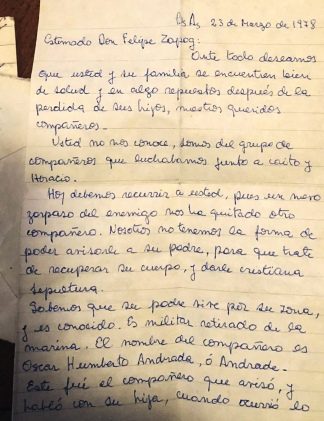 Bs As, 23 de Marzo de 1978
Estimado Don Felipe Zapog:
Ante todo deseamos
que usted y su familia se encuentren bien
de salud y en algo repuestos después de la
perdida de sus hijos, nuestros queridos
compañeros.-
Usted no nos conoce, somos del grupo de
compañeros que luchabamos junto a Caito y
Horacio.
Hoy debemos recurrir a usted, pues un nuevo
zarpazo del enemigo nos ha quitado otro
compañero. Nosotros no tenemos la forma de
poder avisarle a su padre, para que trate
de recuperar su cuerpo, y darle cristiana
sepultura.
Sabemos que su padre vive por su zona,
y es conocido. Es militar retirado de la
marina. El nombre del compañero es
Oscar Humberto Andrada, ó Andrade.-
Este fué el compañero que avisó, y
habló con su hija, cuando ocurrió lo